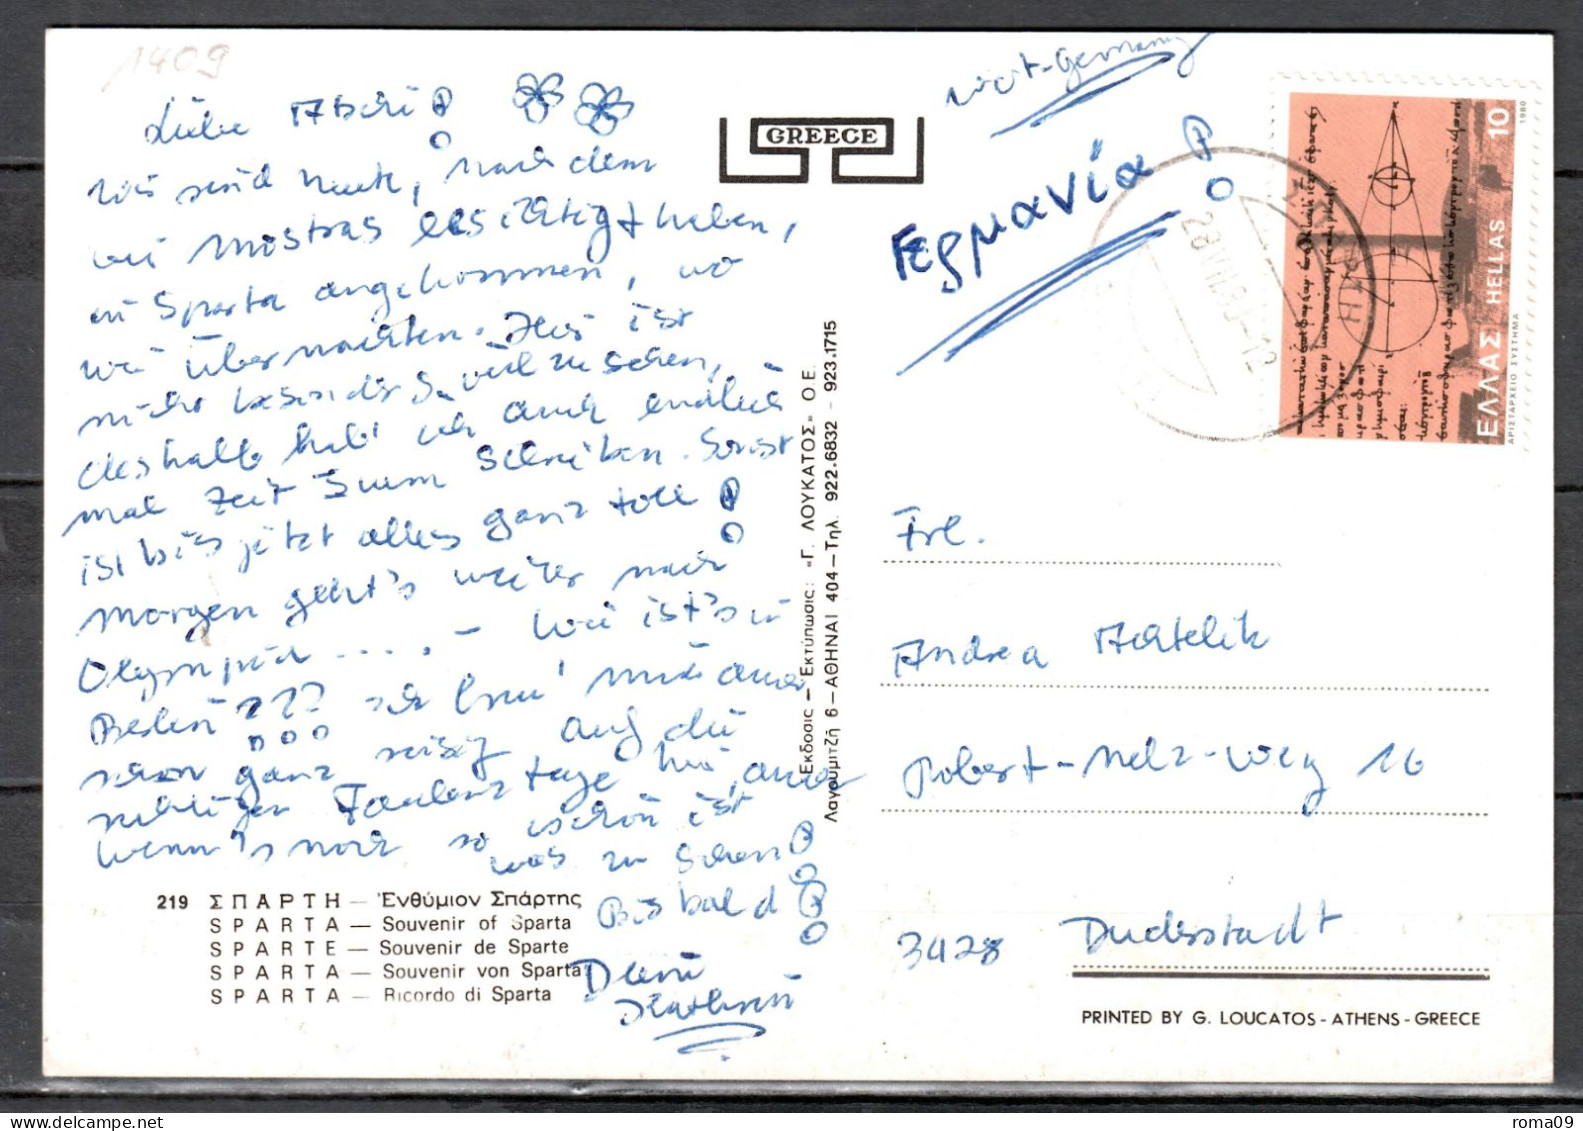 1409
Liebe
wir sind heute, nach dem
wir Mistras besichtigt haben,
in Sparta angekommen, wo
wir übernachten. Hier ist
nicht besonders viel zu sehen,
deshalb hab' ich auch endlich
mal Zeit zum Schreiben. Sonst
ist bis jetzt alles ganz toll!
Morgen geht's weiter nach
Olympia .... – Wie ist's in
Berlin??? Ich freu' mich aber
schon ganz riesig auf die
Faulenztage hier, aber
wenn's noch so schön ist
was zu sehen!
Bis bald!
Deine
Kathrin
219 ΣΠΑΡΤΗ — Ἐνθύμιον Σπάρτης
SPARTA — Souvenir of Sparta
SPARTE — Souvenir de Sparte
SPARTA — Souvenir von Sparta
SPARTA — Ricordo di Sparta
GREECE
Εκδοσις — Εκτύπωσις: «Γ. ΛΟΥΚΑΤΟΣ» Ο.Ε.
Λαγουμιτζή 6 – ΑΘΗΝΑΙ 404 – Τηλ. 922.6832 - 923.1715
West-Germany
Γερμανία!
ΕΛΛΑΣ HELLAS 10
ΑΡΙΣΤΑΡΧΕΙΟ ΣΥΣΤΗΜΑ
1980
Frl.
Andrea
Robert-Nelz-Weg 16
3428 Duderstadt
PRINTED BY G. LOUCATOS - ATHENS - GREECE
roma09